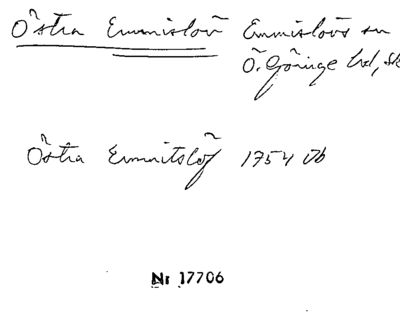 Östra Emmislöv Emmislövs sn
Ö. Göinge hd, Sk
Östra Emmitslöf 1754 Jb
Nr 17706